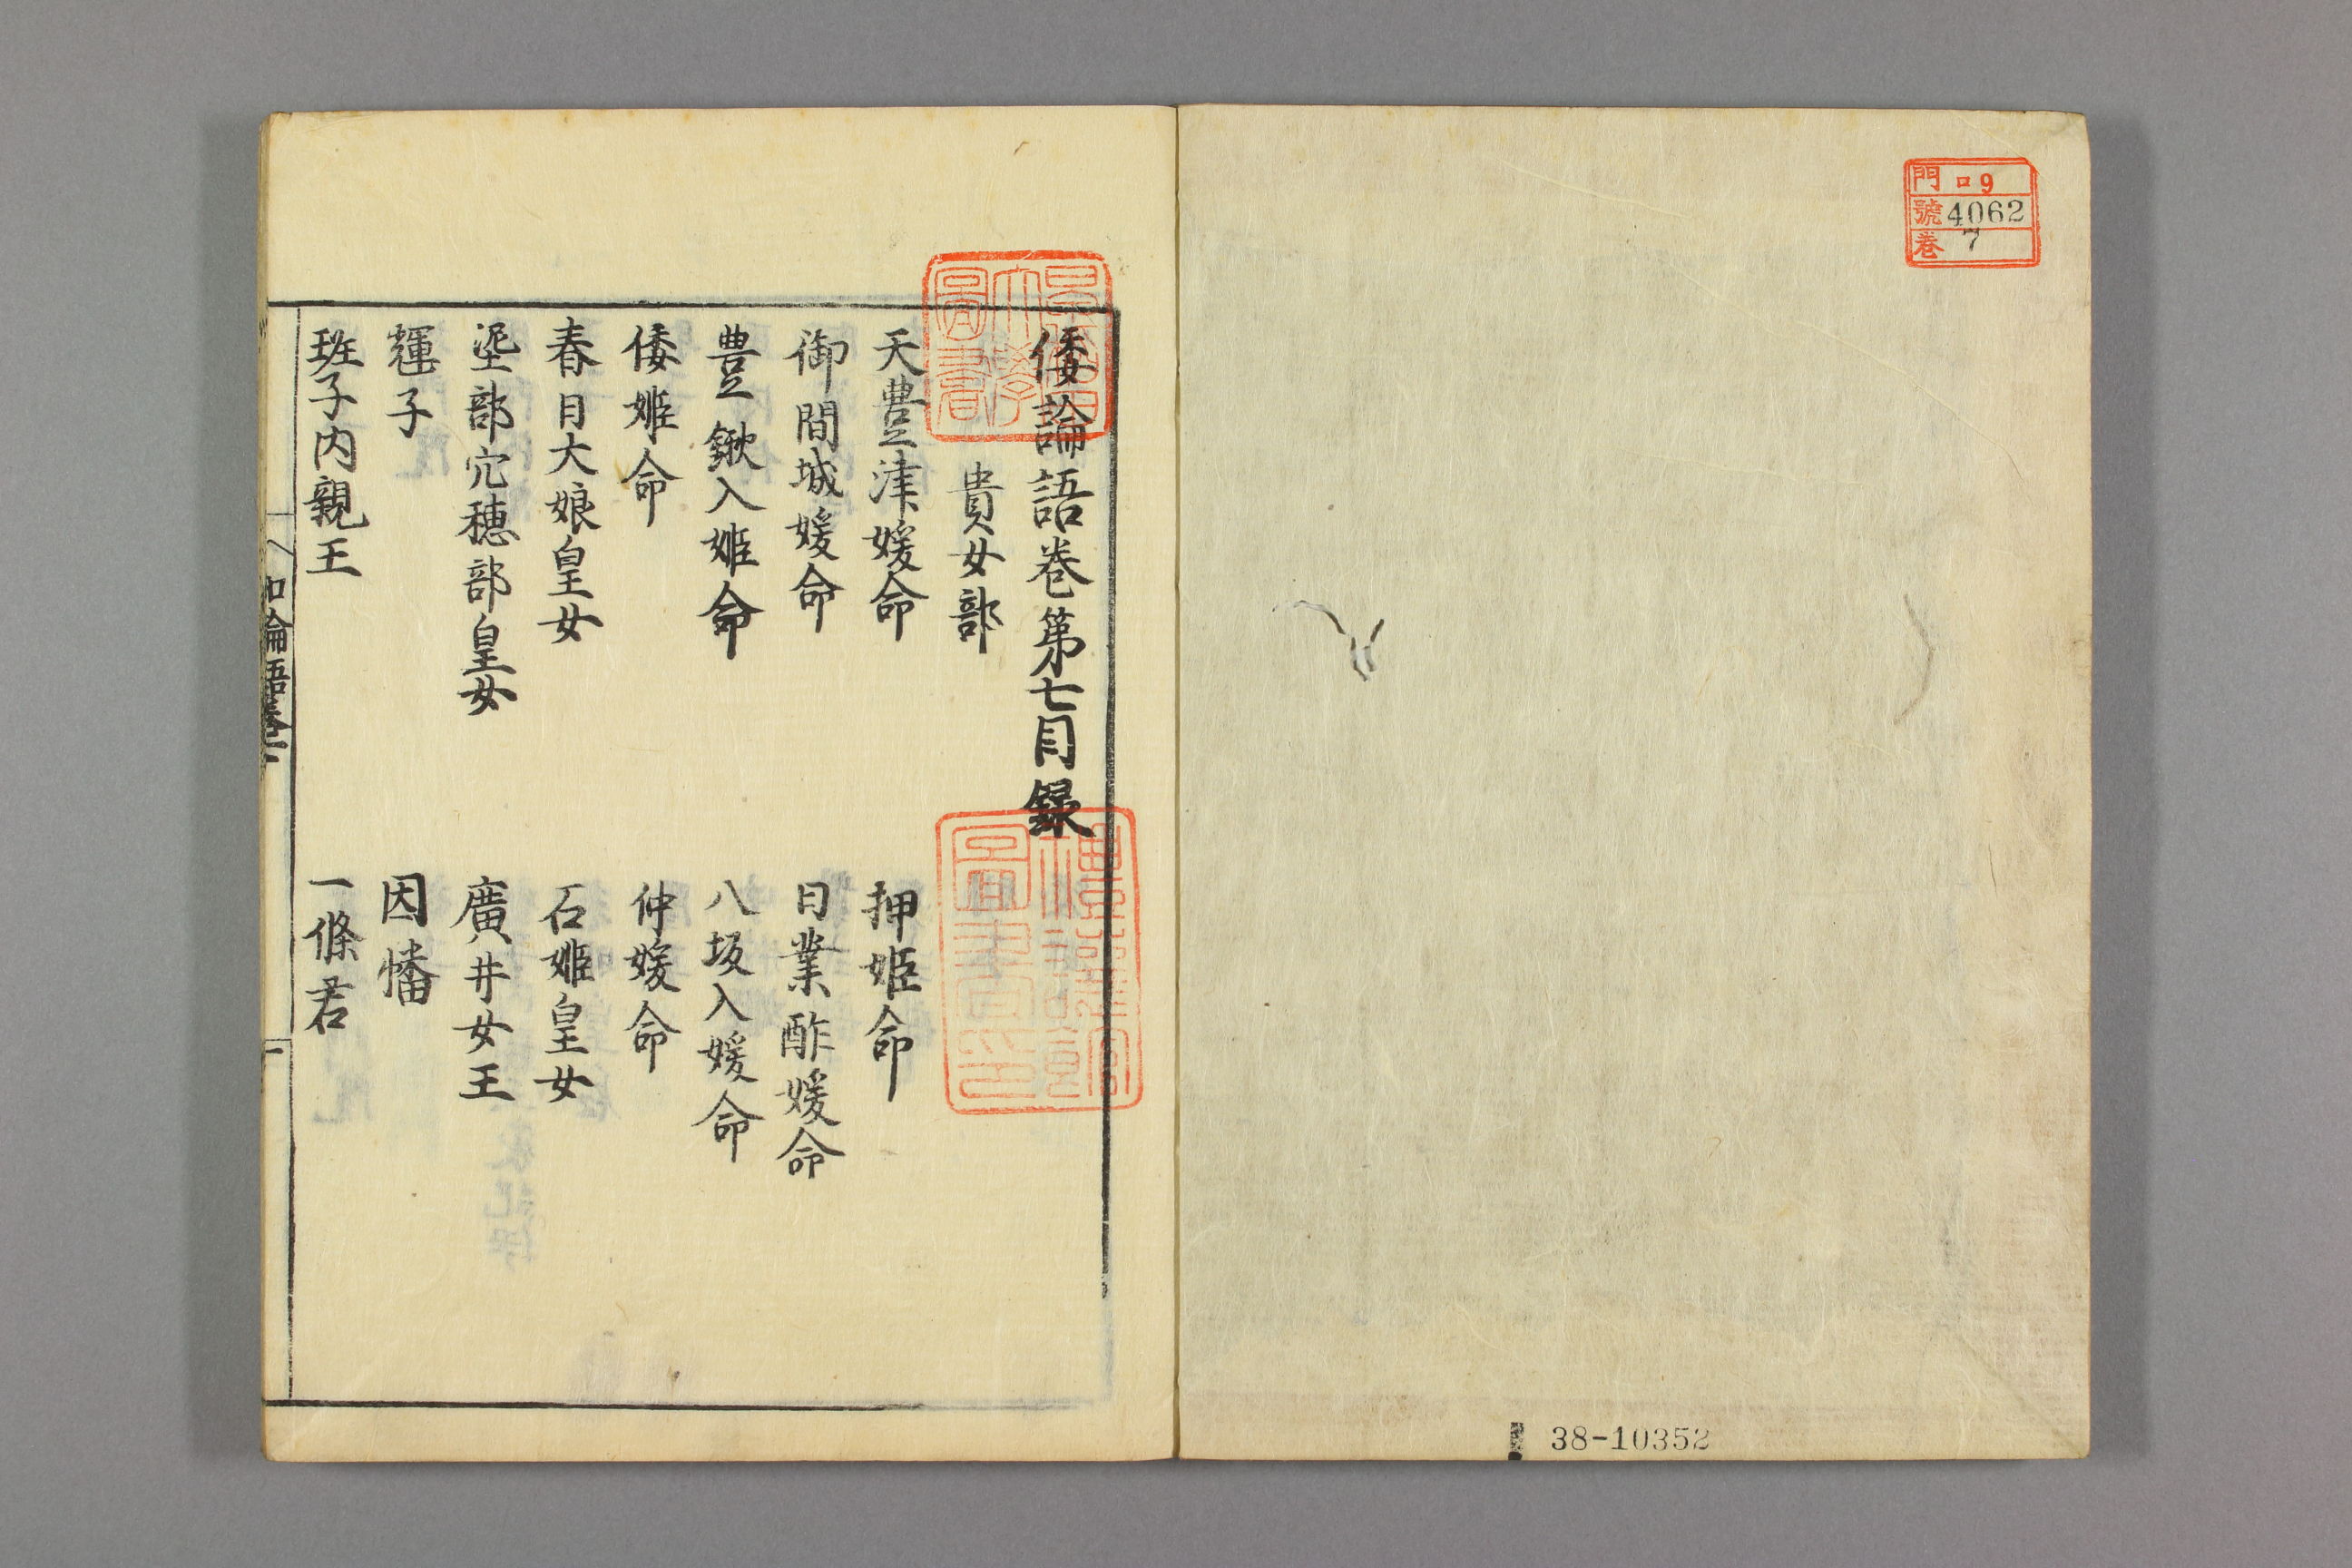 門 ロ9
號 4062
巻 7
38-10352
倭論語巻第七目録
貴女部
天豊津媛命 押姫命
御間城媛命 日業酢媛命
豊鍬入姫命 八坂入媛命
倭姫命 仲媛命
春日大娘皇女 石姫皇女
埿部穴穂部皇女 廣井女王
輝子 因幡
班子内親王 一條君
和論語巻